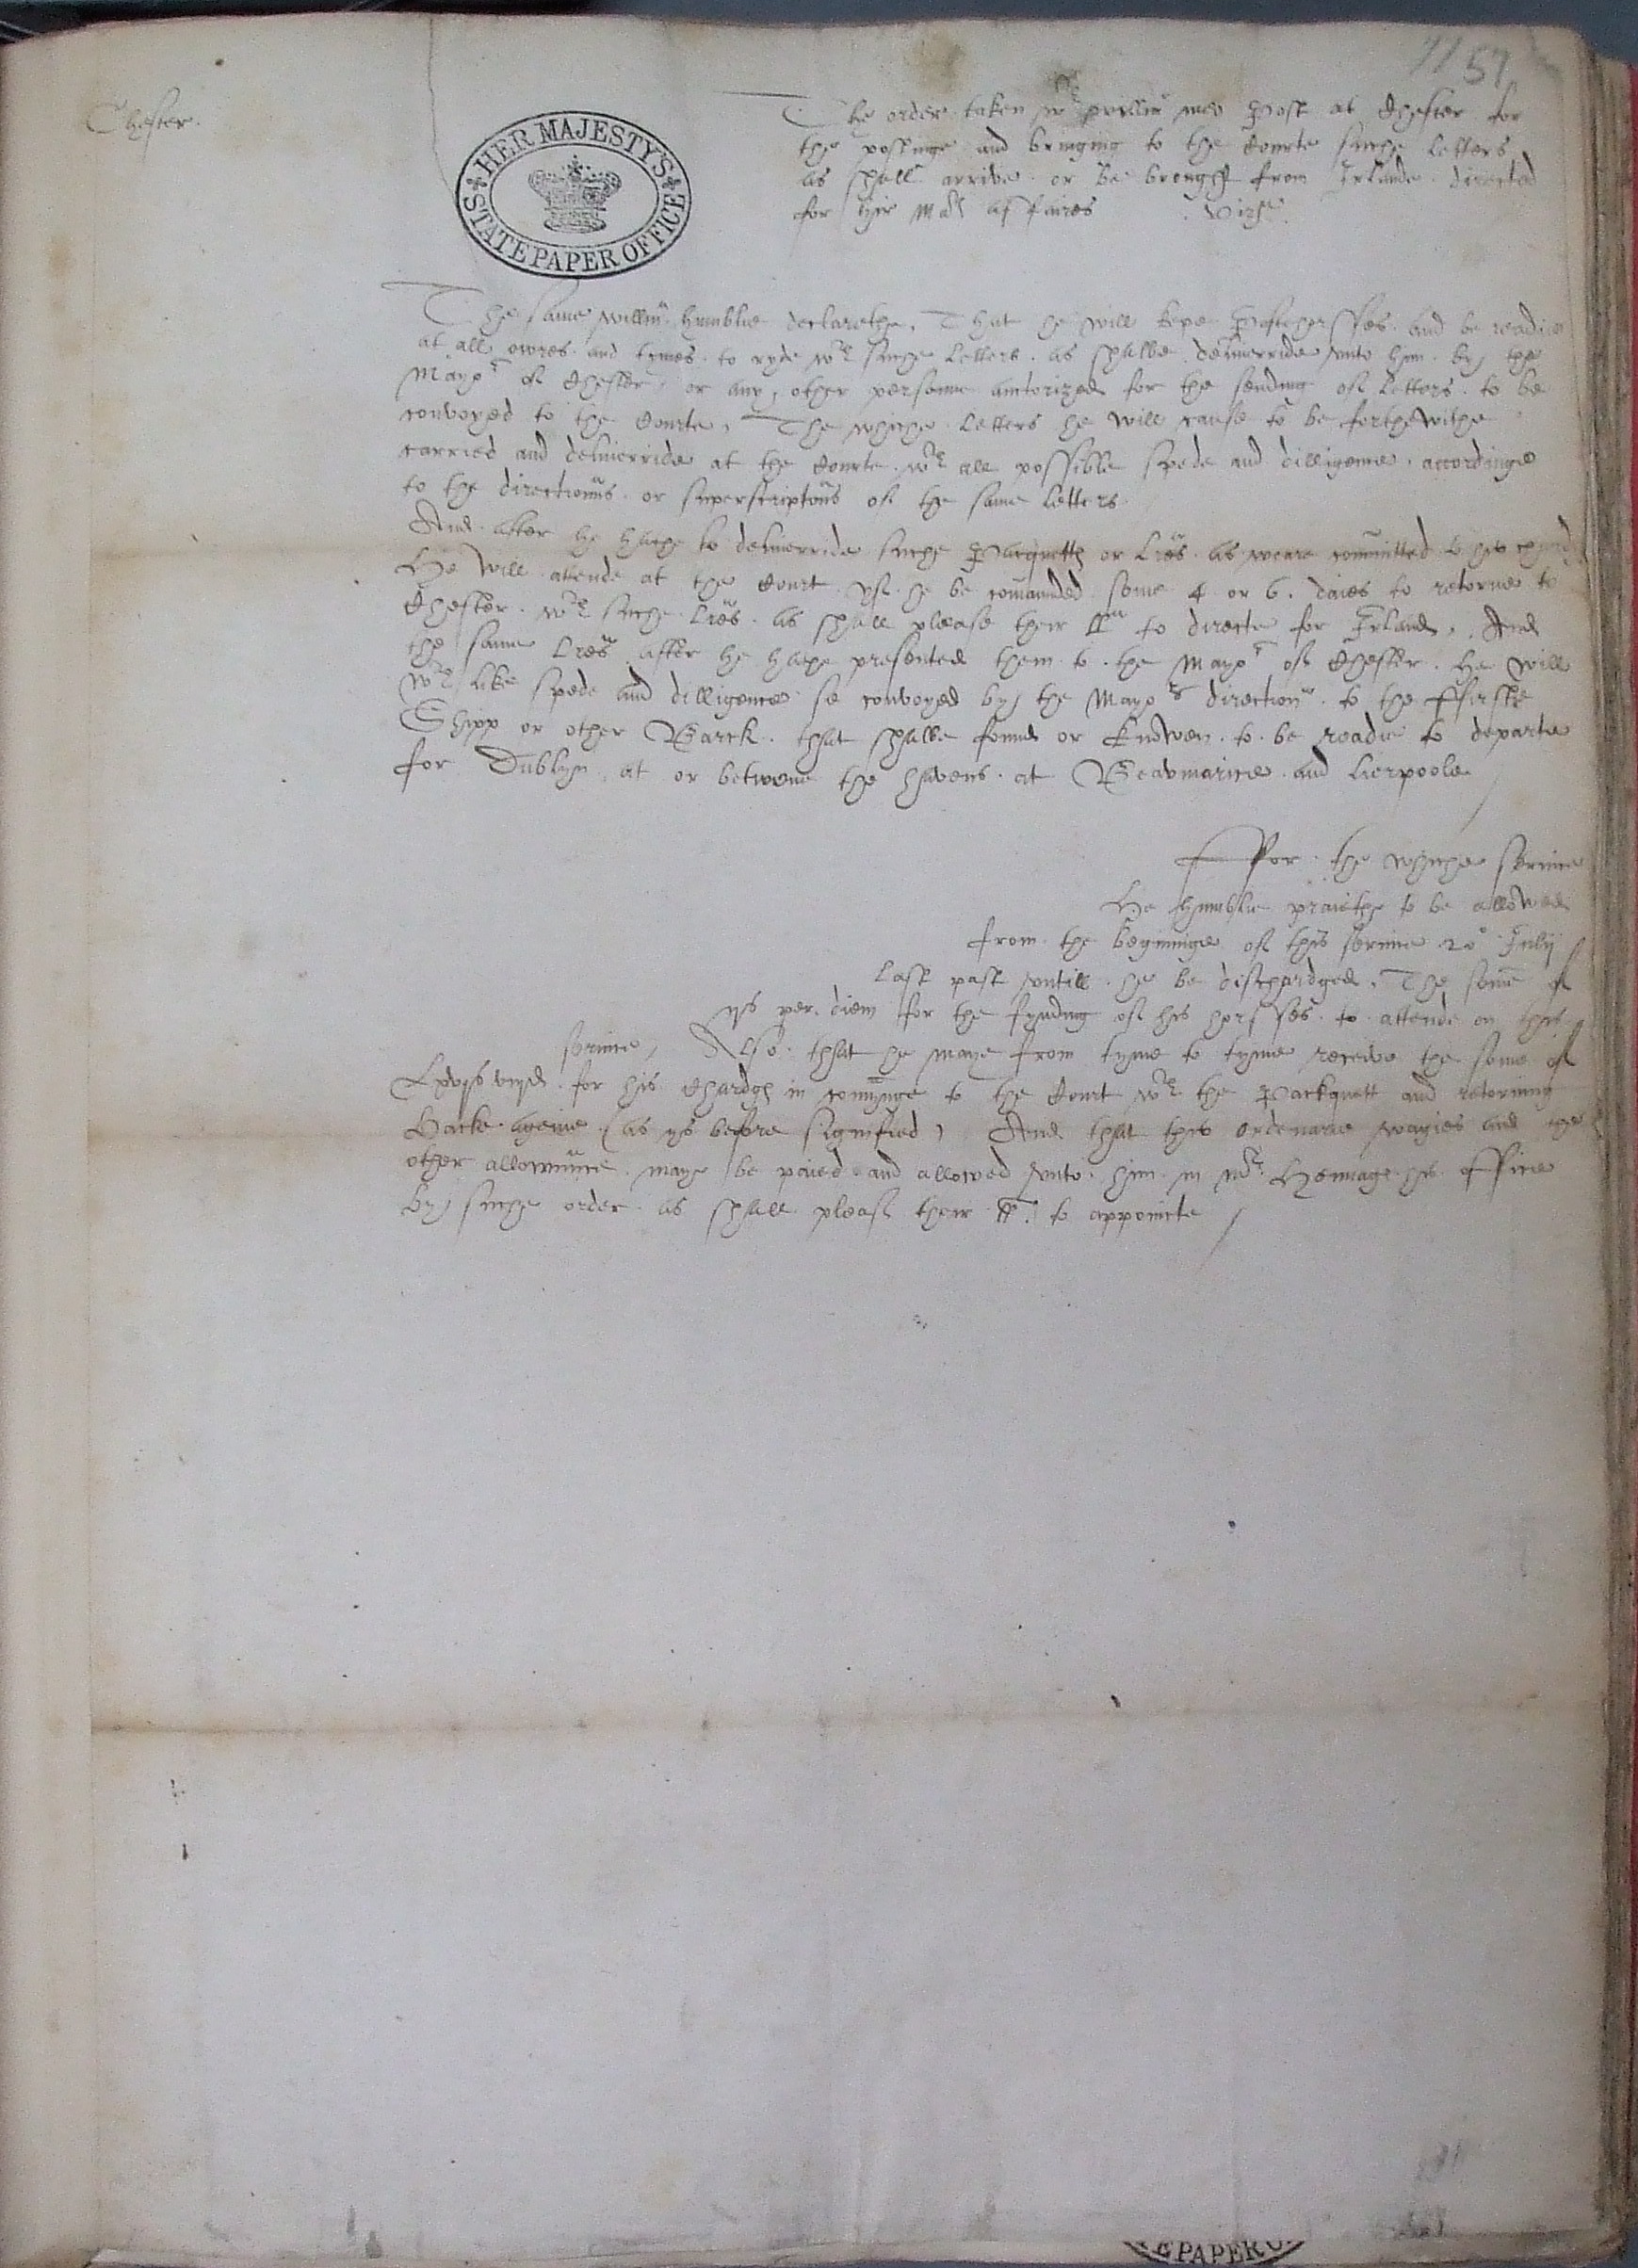 71 57
Chester.
HER MAJESTY'S
STATE PAPER OFFICE
The order taken wth Willm Post at Chester for
the postinge and bringing to the Courte suche letters
as shall arrive or be brought from Irlande directed
for hir Mats affaires vizt.
The same Willm humblie declarethe, That he will kepe Postehorsses and be readie
at all owres and tymes to ryde wth suche letters as shalbe deliverride unto him by the
Mayor of Chester, or any other personne autorized for the sending of letters to be
conveyed to the Courte, The whiche letters he will cause to be forthewithe
carried and deliverride at the Courte wth all possible spede and dilligence accordinge
to the directions or superscriptons of the same letters.
And after he hathe so deliverride suche Pacquetts or lres as weare committed to his chardg
He will attende at the Court yf he be comaunded some 4 or 6. daies to retorne to
Chester wth suche lres as shall please their LL to directe for Irland, And
the same lres after he hathe presented them to the Mayor of Chester. He will
wth like spede and dilligence se conveyed by the Mayors direction to the ffirste
Shipp or other Barck that shalbe founde or knowen to be readie to departe
for Dublyn, at or betwene the havens at Beavmarice and Lierpoole
ffor the whiche service
He humblie praiethe to be allowed
from the beginnige of this service 20 Julij
last past untill he be dischardged, The some of
ijs per diem for the fynding of his horsses to attende on this
service, Also that he maye from tyme to tyme receive the some of
for his Chardgs in comynge to the Court wth the Packquett and retorning
Backe ageine (as ys before signified) And that this ordenarie wagies and the
other allowaunce maye be paied and allowed unto him in Mr Hennage his office
by suche order as shall please their LL. to appointe
E PAPER O